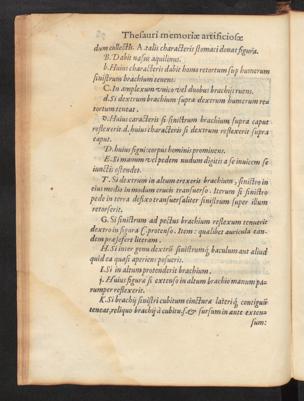 Thesauri memoriæ artificiosæ
dum collectis. A. talis characteris stomari donat figura.
B. Dabit nasus aquilinus.
b. Huius characteris dabit homo retortum sup humerum
sinistrum brachium tenens.
C. In amplexum vnico vel duobus brachijs ruens.
d. Si dextrum brachium supra dextrum humerum re
tortum teneat.
v. Huius caracteris si sinistrum brachium supra caput
reflexerit. d. huius characteris si dextrum reflexerit supra
caput.
D. huius signi corpus hominis prominens.
E. Si manum vel pedem nudum digitis a se inuicem se
iunctis ostendet.
T. Si dextrum in altum erexerit brachium, sinistro in
eius modio in modum crucis transuerso. Iterum si sinistro
pede in terra defixo transuersaliter sinistrum super illum
retorserit.
G. Si sinistrum ad pectus brachium reflexum tenuerit
dextro in figura C. protenso. Item: qualibet auricula ean-
dem præsefert literam.
H. Si inter genu dexterũ sinistrumq; baculum aut aliud
quid ea quasi aperiens posuerit.
I. Si in altum protenderit brachium.
j. Huius figura si extenso in altum brachio manum pa-
rumper reflexerit.
K. Si brachij sinistri cubitum cincturæ lateriq; contiguũ
teneat, reliquo brachij à cubitu. s. & sursum in ante exten-
sum: